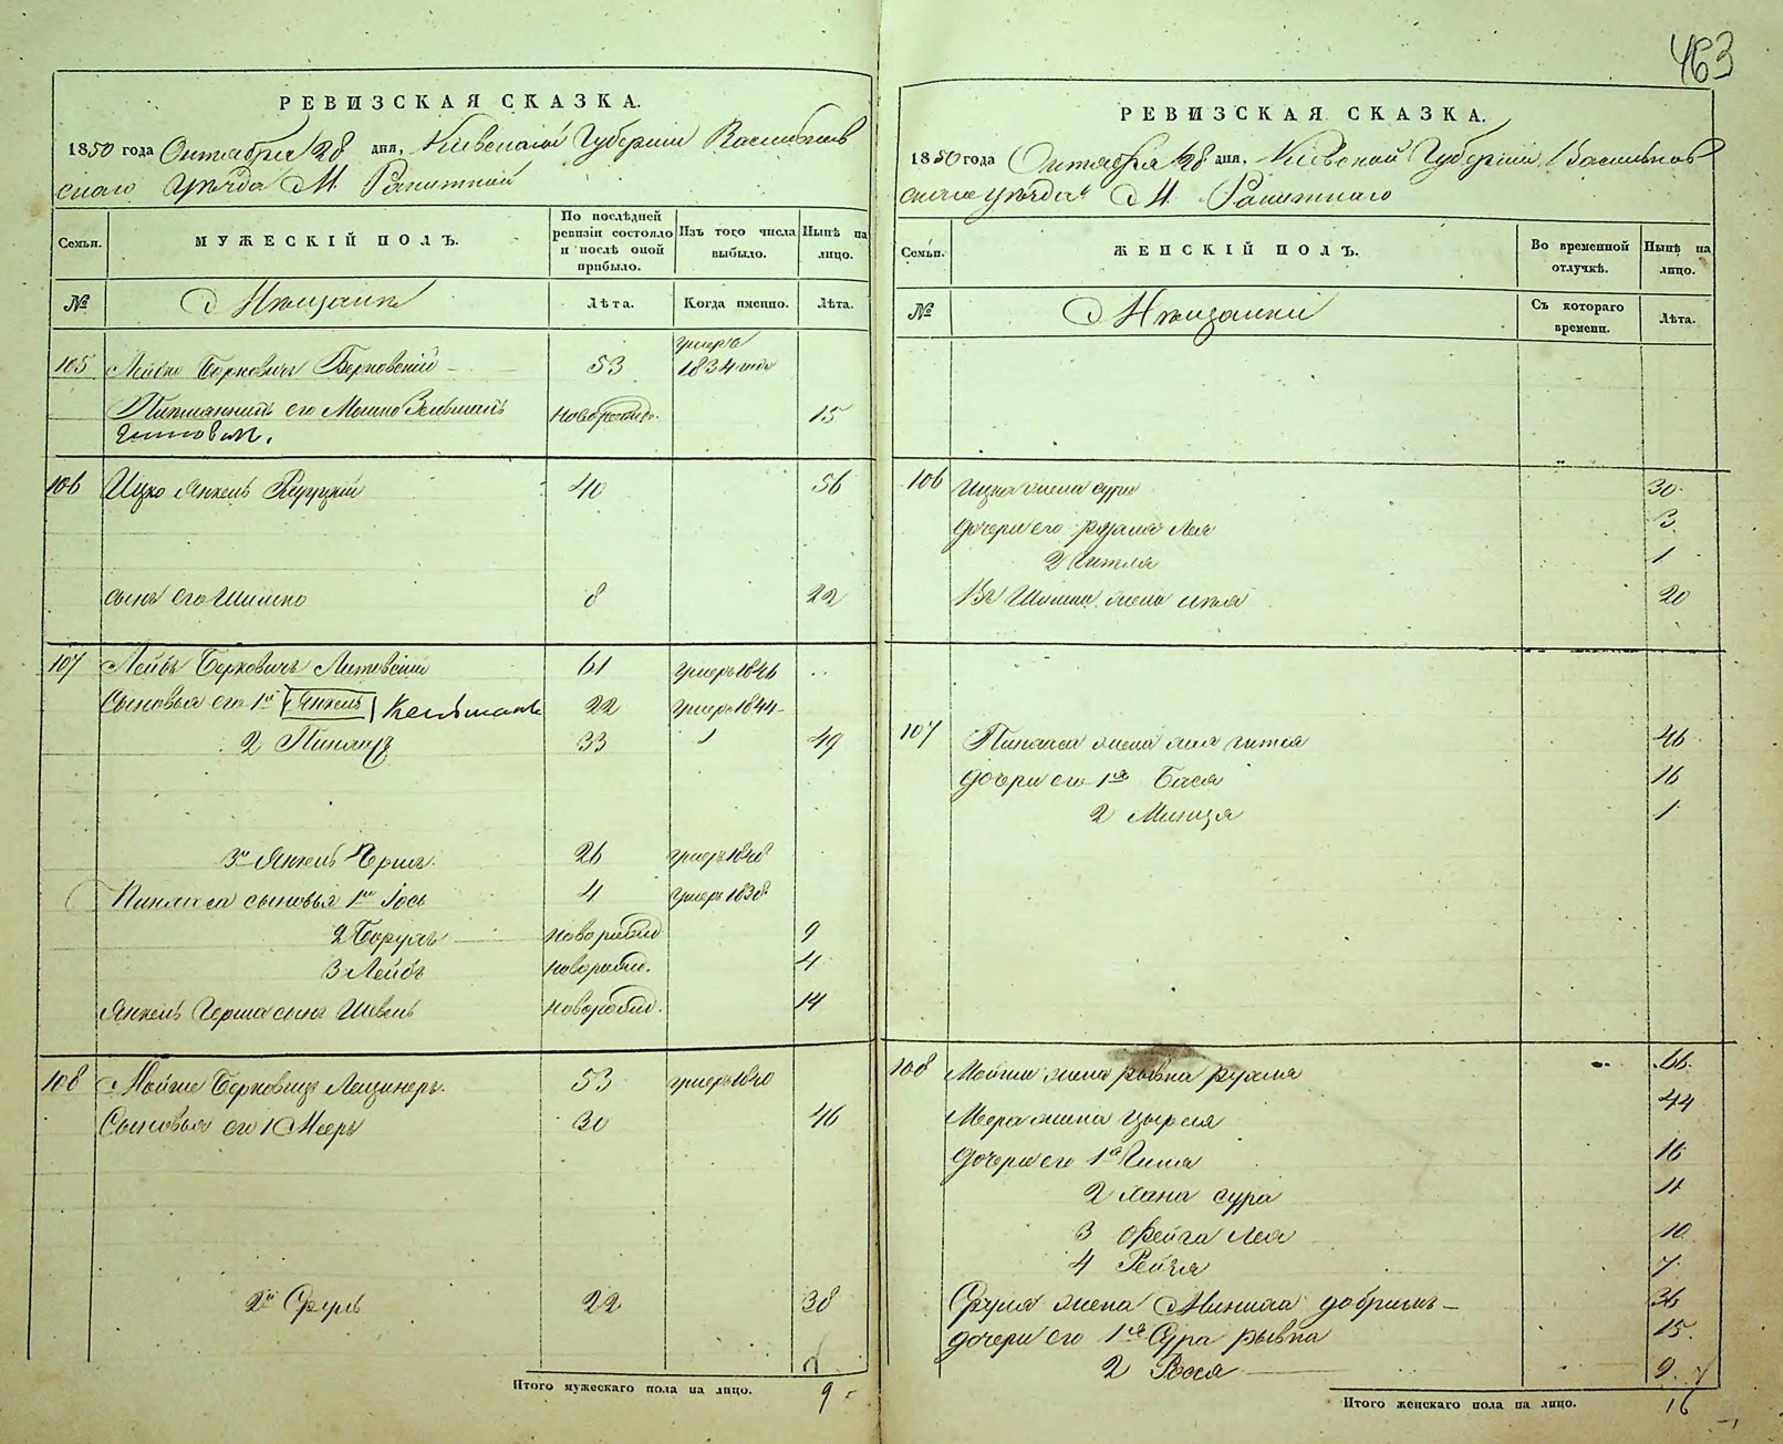 463
РЕВИЗСКАЯ СКАЗКА.
1850 года Октября 28 дня, Кіевской Губерніи Васильков
скаго Уѣзда М. Ракитной
Семьи. МУЖЕСКІЙ ПОЛЪ. По послѣдней ревизіи состояло и послѣ оной прибыло. Изъ того числа выбыло. Нынѣ на лицо.
№ Мѣщане Лѣта. Когда именно. Лѣта.
105 Лейба Берковичъ Берковскій 53 умеръ 1834 года
Племянникъ его Мошко Зельманъ новорожд. 15
106 Ицко Янкель 40 56
сынъ его Шимко 8 22
107 Лейбъ Берковичъ Литовскій 61 умеръ 1846
Сыновья его 1й Янкель Кельманъ 22 умеръ 1844
2 Пинхасъ 33 49
3й Янкель Герша 26 умеръ 1840
Пинхаса сыновья 1й Іось 4 умеръ 1838
2 Борухъ новорожд 9
3 Лейбъ новорожд. 4
Янкель Герша сынъ Шевель новорожд. 14
108 Мойше Берковичъ 53 умеръ 1840
Сыновья его 1 Мееръ 30 46
2й Сруль 22 38
Итого мужескаго пола на лицо. 9
РЕВИЗСКАЯ СКАЗКА.
1850 года Октября 28 дня, Кіевской Губерніи Васильков
скаго уѣзда М. Ракитнаго
Семьи. ЖЕНСКІЙ ПОЛЪ. Во временной отлучкѣ. Нынѣ на лицо.
№ Мѣщанки Съ котораго времени. Лѣта.
106 Ицка жена сура 30
дочери его рухля Лея 3
2 Гитля 1
Шимка жена 20
107 Пинхаса жена хая гитля 46
дочери его 1я Бася 16
2 Минця 1
108 Мойши жена рывка рухля 66
Меера жена цырля 44
дочери его 1я 16
2 хана сура 11
3 Фейга Лея 10
4 Рейзя 7
Сруля жена 36
дочери его 1я Сура рывка 15
2 Рося 9
Итого женскаго пола на лицо. 16